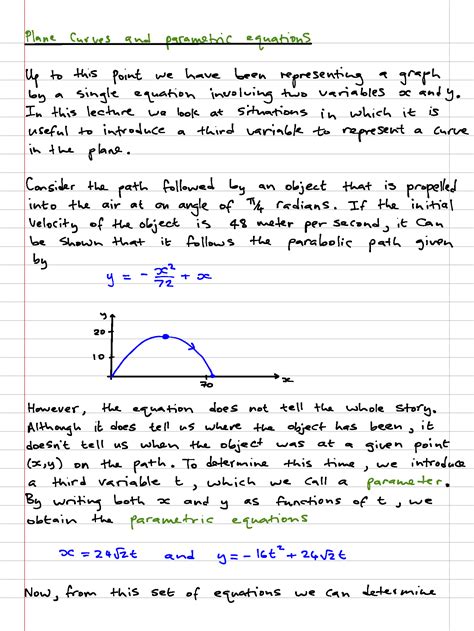 Plane Curves and parametric equations
Up to this point we have been representing a graph
by a single equation involving two variables x and y.
In this lecture we look at situations in which it is
useful to introduce a third variable to represent a curve
in the plane.
Consider the path followed by an object that is propelled
into the air at an angle of π/4 radians. If the initial
velocity of the object is 48 meter per second, it can
be shown that it follows the parabolic path given
by
y = - x²/72 + x
y
20
10
70
x
However, the equation does not tell the whole story.
Although it does tell us where the object has been, it
doesn't tell us when the object was at a given point
(x,y) on the path. To determine this time, we introduce
a third variable t, which we call a parameter.
By writing both x and y as functions of t, we
obtain the parametric equations
x = 24√2t and y = -16t² + 24√2t
Now, from this set of equations we can determine